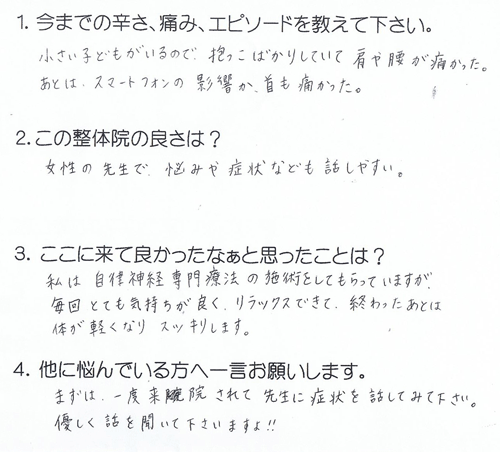 1. 今までの辛さ、痛み、エピソードを教えて下さい。
小さい子どもがいるので、抱っこばかりしていて 肩や腰が痛かった。
あとは、スマートフォンの 影響か、首も痛かった。
2. この整体院の良さは？
女性の先生で、悩みや症状なども 話しやすい。
3. ここに来て良かったなぁと思ったことは？
私は 自律神経専門療法の施術をしてもらっていますが、
毎回とても気持ちが良く、リラックスできて、終わったあとは
体が軽くなり スッキリします。
4. 他に悩んでいる方へ一言お願いします。
まずは、一度来院されて 先生に症状を話してみて下さい。
優しく話を聞いて下さいますよ!!